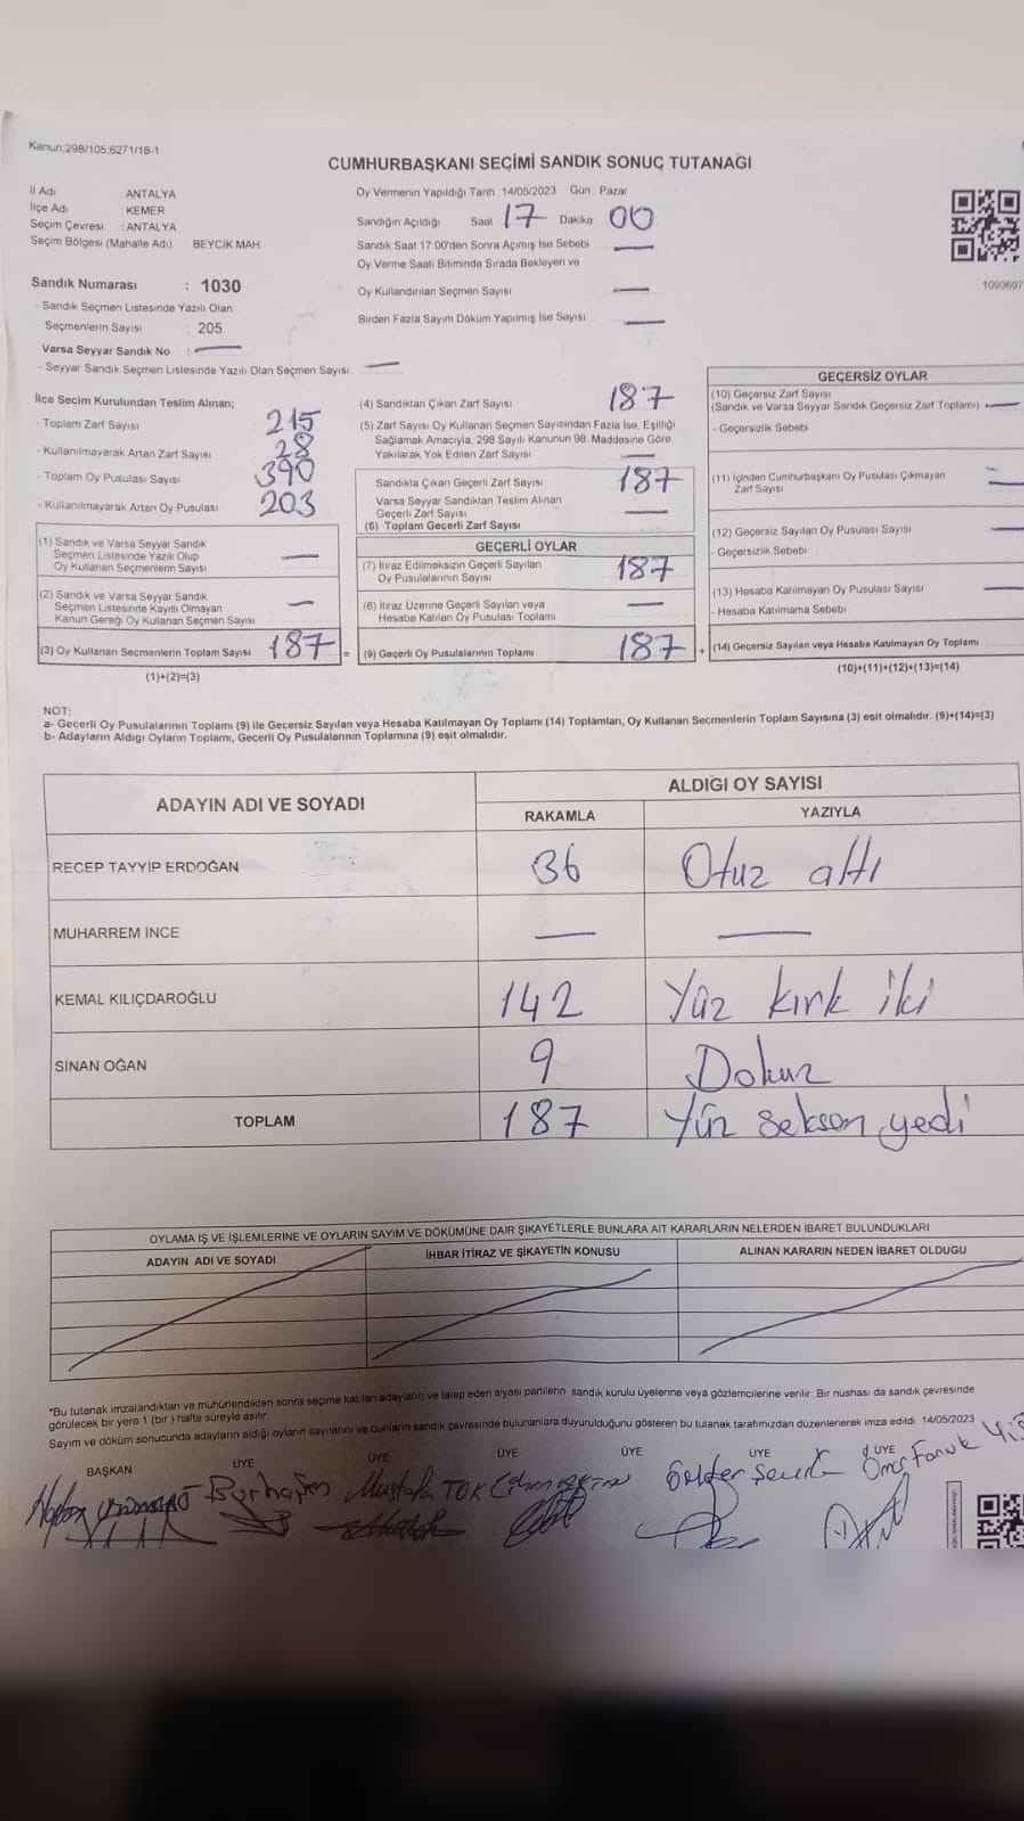 Kanun:298/105;6271/18-1
CUMHURBAŞKANI SEÇİMİ SANDIK SONUÇ TUTANAĞI
İl Adı : ANTALYA
İlçe Adı : KEMER
Seçim Çevresi : ANTALYA
Seçim Bölgesi (Mahalle Adı) BEYCİK MAH.
Sandık Numarası : 1030
- Sandık Seçmen Listesinde Yazılı Olan
Seçmenlerin Sayısı : 205
Varsa Seyyar Sandık No : —
- Seyyar Sandık Seçmen Listesinde Yazılı Olan Seçmen Sayısı —
Oy Vermenin Yapıldığı Tarih 14/05/2023 Gün: Pazar
Sandığın Açıldığı Saat 17 Dakika 00
Sandık Saat 17:00'den Sonra Açılmış İse Sebebi —
Oy Verme Saati Bitiminde Sırada Bekleyen ve
Oy Kullandırılan Seçmen Sayısı —
Birden Fazla Sayım Döküm Yapılmış İse Sayısı —
1090697
İlçe Seçim Kurulundan Teslim Alınan;
- Toplam Zarf Sayısı 215
- Kullanılmayarak Artan Zarf Sayısı 28
- Toplam Oy Pusulası Sayısı 390
- Kullanılmayarak Artan Oy Pusulası 203
(1) Sandık ve Varsa Seyyar Sandık
Seçmen Listesinde Yazılı Olup
Oy Kullanan Seçmenlerin Sayısı —
(2) Sandık ve Varsa Seyyar Sandık
Seçmen Listesinde Kayıtlı Olmayan
Kanun Gereği Oy Kullanan Seçmen Sayısı —
(3) Oy Kullanan Seçmenlerin Toplam Sayısı 187 =
(1)+(2)=(3)
(4) Sandıktan Çıkan Zarf Sayısı 187
(5) Zarf Sayısı Oy Kullanan Seçmen Sayısından Fazla İse, Eşitliği
Sağlamak Amacıyla, 298 Sayılı Kanunun 98. Maddesine Göre
Yakılarak Yok Edilen Zarf Sayısı —
Sandıkta Çıkan Geçerli Zarf Sayısı 187
Varsa Seyyar Sandıktan Teslim Alınan
Geçerli Zarf Sayısı —
(6) Toplam Geçerli Zarf Sayısı
GEÇERLİ OYLAR
(7) İtiraz Edilmeksizin Geçerli Sayılan
Oy Pusulalarının Sayısı 187
(8) İtiraz Üzerine Geçerli Sayılan veya
Hesaba Katılan Oy Pusulası Toplamı —
(9) Geçerli Oy Pusulalarının Toplamı 187 +
GEÇERSİZ OYLAR
(10) Geçersiz Zarf Sayısı
(Sandık ve Varsa Seyyar Sandık Geçersiz Zarf Toplamı) —
- Geçersizlik Sebebi
(11) İçinden Cumhurbaşkanı Oy Pusulası Çıkmayan
Zarf Sayısı —
(12) Geçersiz Sayılan Oy Pusulası Sayısı —
- Geçersizlik Sebebi
(13) Hesaba Katılmayan Oy Pusulası Sayısı —
- Hesaba Katılmama Sebebi
(14) Geçersiz Sayılan veya Hesaba Katılmayan Oy Toplamı
(10)+(11)+(12)+(13)=(14)
NOT:
a- Geçerli Oy Pusulalarının Toplamı (9) ile Geçersiz Sayılan veya Hesaba Katılmayan Oy Toplamı (14) Toplamları, Oy Kullanan Seçmenlerin Toplam Sayısına (3) eşit olmalıdır. (9)+(14)=(3)
b- Adayların Aldığı Oyların Toplamı, Geçerli Oy Pusulalarının Toplamına (9) eşit olmalıdır.
ADAYIN ADI VE SOYADI ALDIĞI OY SAYISI
RAKAMLA YAZIYLA
RECEP TAYYİP ERDOĞAN 36 Otuz altı
MUHARREM İNCE — —
KEMAL KILIÇDAROĞLU 142 Yüz kırk iki
SİNAN OĞAN 9 Dokuz
TOPLAM 187 Yüz seksen yedi
OYLAMA İŞ VE İŞLEMLERİNE VE OYLARIN SAYIM VE DÖKÜMÜNE DAİR ŞİKAYETLERLE BUNLARA AİT KARARLARIN NELERDEN İBARET BULUNDUKLARI
ADAYIN ADI VE SOYADI İHBAR İTİRAZ VE ŞİKAYETİN KONUSU ALINAN KARARIN NEDEN İBARET OLDUĞU
*Bu tutanak imzalandıktan ve mühürlendikten sonra seçime katılan adayların ve talep eden siyasi partilerin sandık kurulu üyelerine veya gözlemcilerine verilir. Bir nüshası da sandık çevresinde
görülecek bir yere 1 (bir) hafta süreyle asılır.
Sayım ve döküm sonucunda adayların aldığı oyların sayılarını ve bunların sandık çevresinde bulunanlara duyurulduğunu gösteren bu tutanak tarafımızdan düzenlenerek imza edildi. 14/05/2023
BAŞKAN ÜYE ÜYE ÜYE ÜYE ÜYE ÜYE
Mustafa TOK
Ömer Faruk